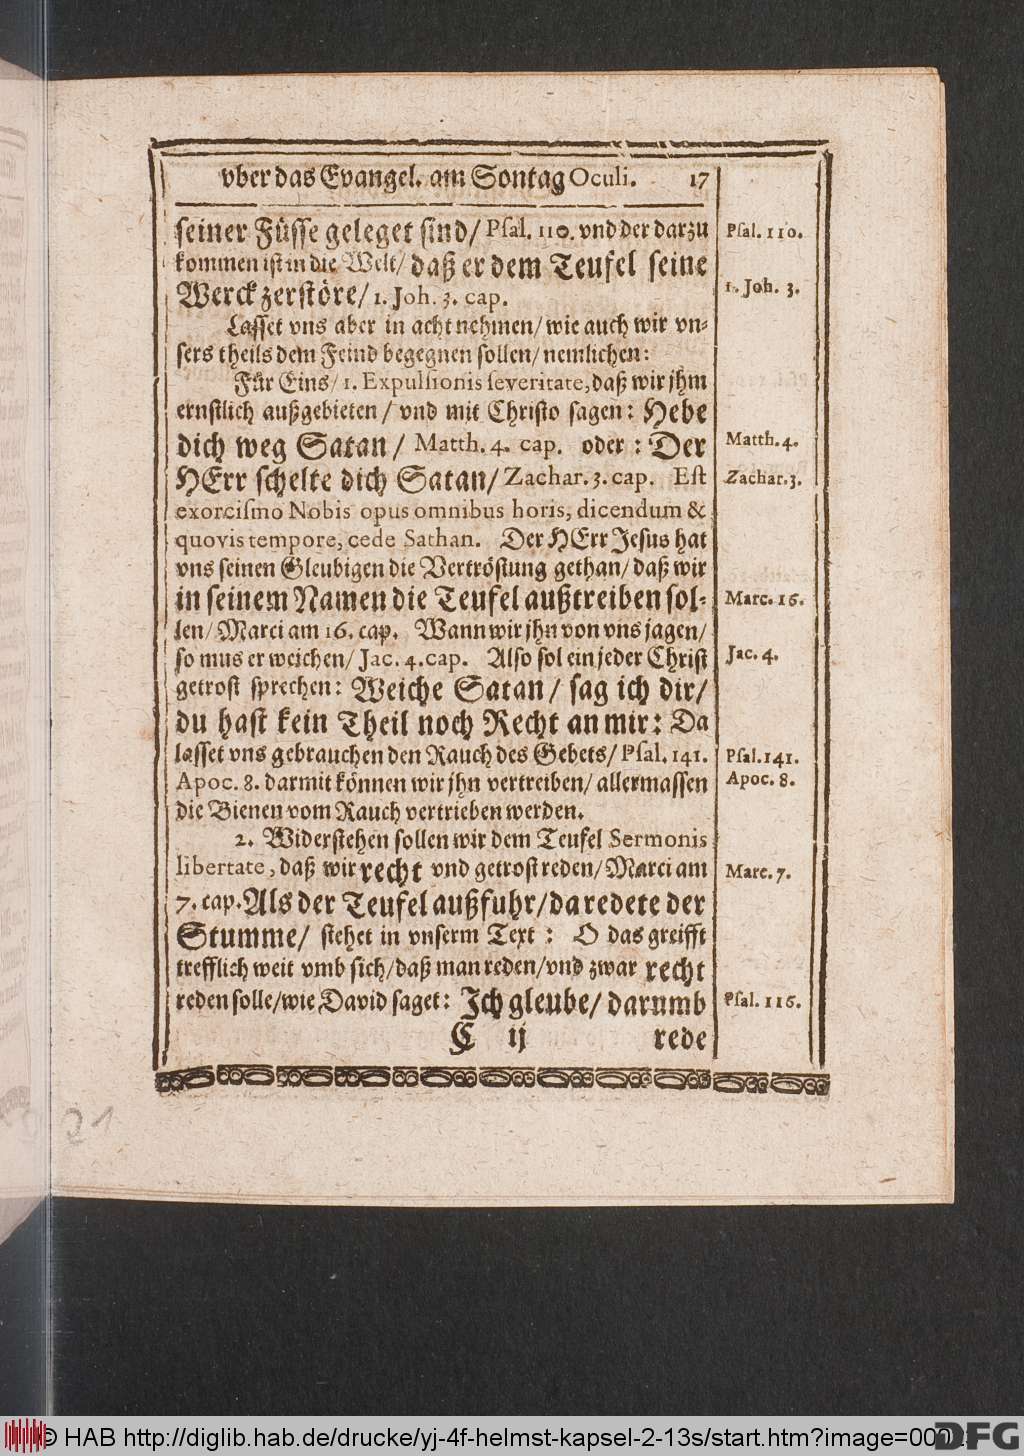 vber das Evangel. am Sontag Oculi. 17
seiner Füsse geleget sind/ Psal. 110. vnd der darzu
Psal. 110.
kommen ist in die Welt/ daß er dem Teufel seine
Werck zerstöre/ 1. Joh. 3. cap.
1. Joh. 3.
Lasset vns aber in acht nehmen/ wie auch wir vn-
sers theils dem Feind begegnen sollen/ nemlichen:
Für Eins/ 1. Expulsionis severitate, daß wir jhm
ernstlich außgebieten / vnd mit Christo sagen: Hebe
dich weg Satan / Matth. 4. cap. oder : Der
Matth. 4.
HErr schelte dich Satan/ Zachar. 3. cap. Est
Zachar. 3.
exorcismo Nobis opus omnibus horis, dicendum &
quovis tempore, cede Sathan. Der HErr Jesus hat
vns seinen Gleubigen die Vertröstung gethan/ daß wir
in seinem Namen die Teufel außtreiben sol-
Marc. 16.
len/ Marci am 16. cap. Wann wir jhn von vns jagen/
so mus er weichen/ Jac. 4. cap. Also sol ein jeder Christ
Jac. 4.
getrost sprechen: Weiche Satan / sag ich dir/
du hast kein Theil noch Recht an mir: Da
lasset vns gebrauchen den Rauch des Gebets/ Psal. 141.
Psal. 141.
Apoc. 8. darmit können wir jhn vertreiben/ allermassen
Apoc. 8.
die Bienen vom Rauch vertrieben werden.
2. Widerstehen sollen wir dem Teufel Sermonis
libertate, daß wir recht vnd getrost reden/ Marci am
Marc. 7.
7. cap. Als der Teufel außfuhr/ da redete der
Stumme/ stehet in vnserm Text : O das greifft
trefflich weit vmb sich/ daß man reden/ vnd zwar recht
reden solle/ wie David saget: Jch gleube/ darumb
Psal. 116.
C ij rede
21
© HAB http://diglib.hab.de/drucke/yj-4f-helmst-kapsel-2-13s/start.htm?image=000
DFG